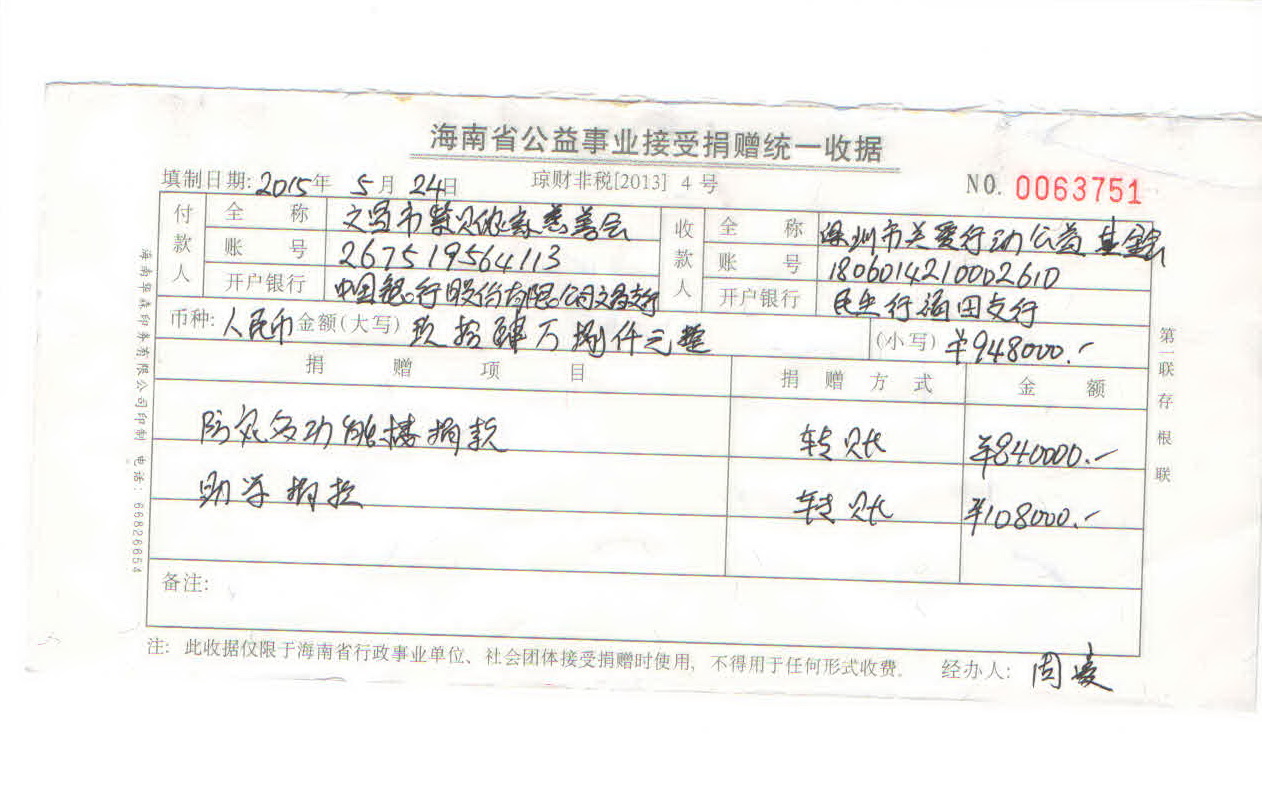 海南省公益事业接受捐赠统一收据
填制日期: 2015年 5月 24日 琼财非税[2013] 4 号 NO. 0063751
付款人 全称 文昌市紫贝侬家慈善会 收款人 全称 深圳市关爱行动公益基金会
账号 267519564113 账号 1806014210002610
开户银行 中国银行股份有限公司文昌支行 开户银行 民生行福田支行
币种: 人民币 金额(大写) 玖拾肆万捌仟元整 (小写) ¥948000.-
捐赠项目 捐赠方式 金额
防灾多功能楼捐款 转账 ¥840000.-
助学捐款 转账 ¥108000.-
备注:
注: 此收据仅限于海南省行政事业单位、社会团体接受捐赠时使用，不得用于任何形式收费。 经办人: 周
海南华森印务有限公司印制 电话: 66826654
第一联存根联